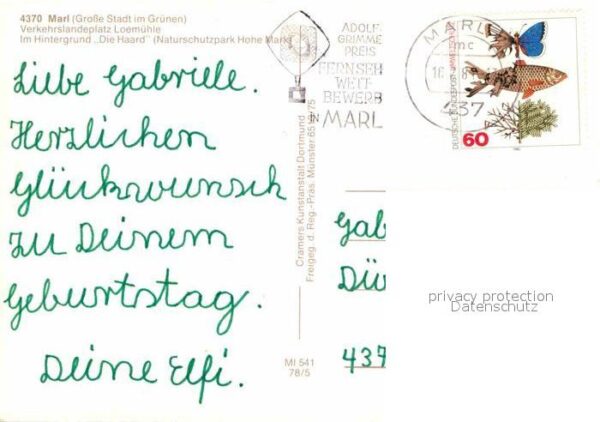 4370 Marl (Große Stadt im Grünen)
Verkehrslandeplatz Loemühle
Im Hintergrund „Die Haard" (Naturschutzpark Hohe Mark)
Liebe Gabriele.
Herzlichen
Glückwunsch
zu Deinem
Geburtstag.
Deine Elfi.
Cramers Kunstanstalt Dortmund
Freigeg. d. Reg.-Präs. Münster
MI 541
78/5
ADOLF-
GRIMME
PREIS
FERNSEH
WETT-
BEWERB
IN MARL
MARL
mc
437
DEUTSCHE BUNDESPOST
60
Gab
Dü
437
privacy protection
Datenschutz